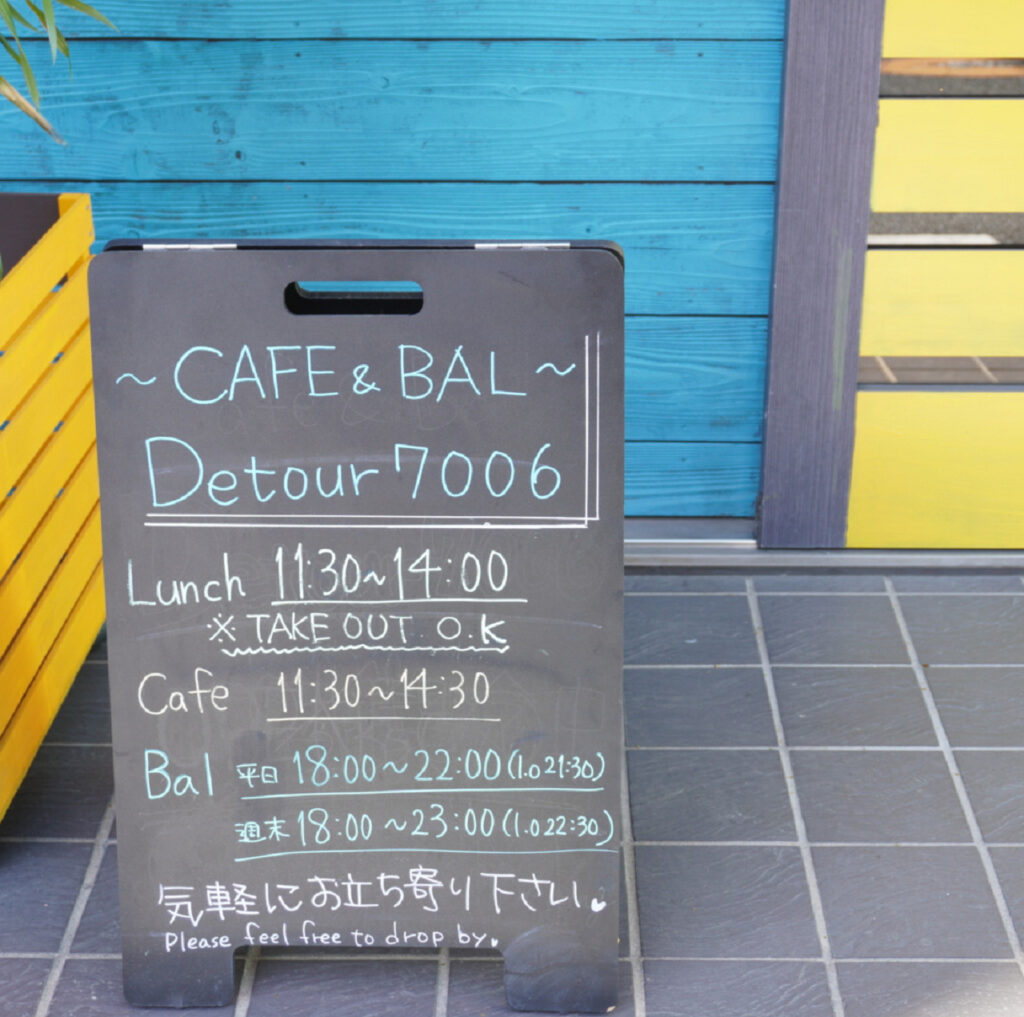 ~ CAFE & BAL ~
Detour 7006
Lunch 11:30~14:00
※ TAKE OUT O.K
Cafe 11:30~14:30
Bal 平日 18:00~22:00(l.o 21:30)
週末 18:00~23:00(l.o 22:30)
気軽にお立ち寄り下さい♥
Please feel free to drop by♥